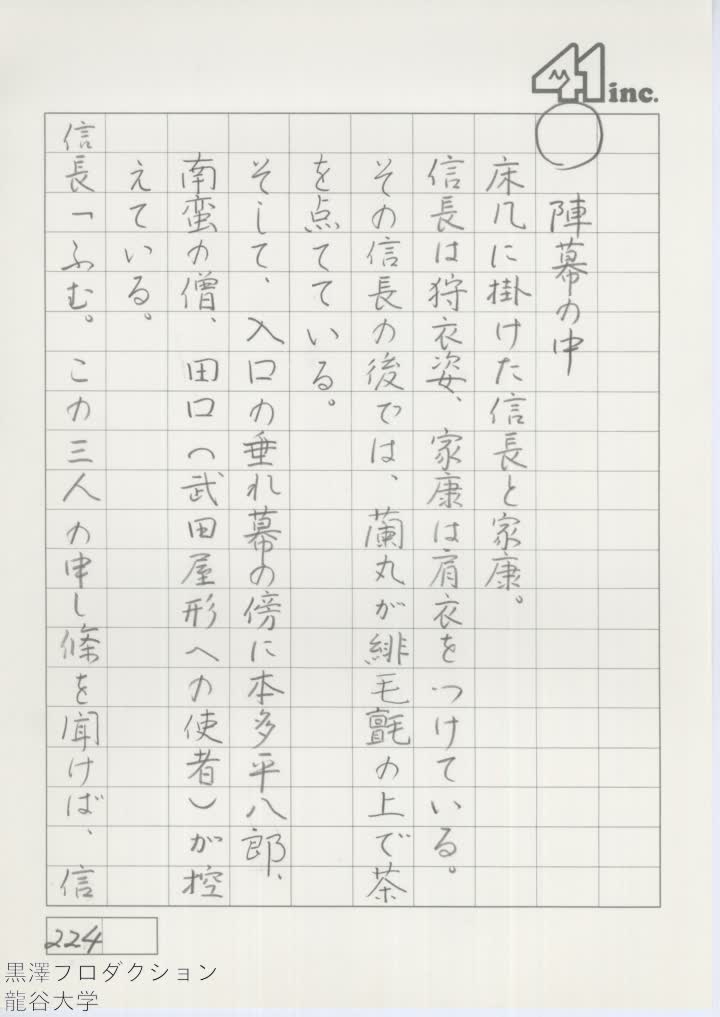 41 inc.
○ 陣幕の中
床几に掛けた信長と家康。
信長は狩衣姿、家康は肩衣をつけている。
その信長の後では、蘭丸が緋毛氈の上で茶
を点てている。
そして、入口の垂れ幕の傍に本多平八郎、
南蛮の僧、田口(武田屋形への使者)が控
えている。
信長「ふむ。この三人の申し條を聞けば、信
224
黒澤プロダクション
龍谷大学